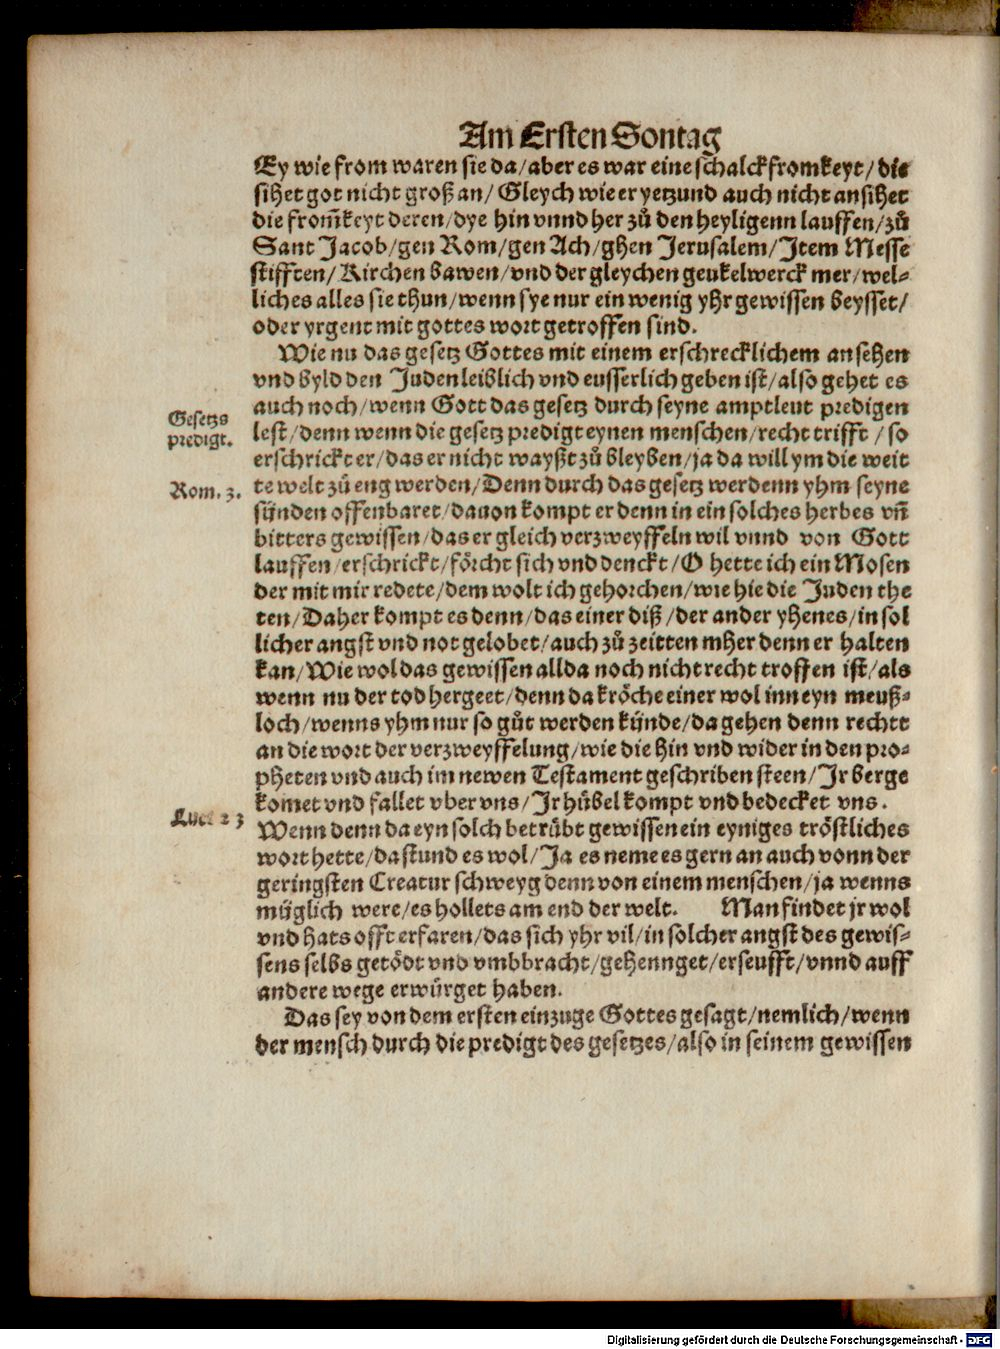 Am Ersten Sontag
Ey wie from waren sie da/aber es war eine schalckfromkeyt/ die
sihet got nicht groß an/ Gleych wie er yetzund auch nicht ansihet
die from̃keyt deren/dye hin vnnd her zů den heyligenn lauffen/zů
Sant Jacob/gen Rom/gen Ach/ghen Jerusalem/Item Messe
stifften/Kirchen bawen/vnd der gleychen geukelwerck mer/wel-
liches alles sie thun/wenn sye nur ein wenig yhr gewissen beysset/
oder yrgent mit gottes wort getroffen sind.
Wie nu das gesetz Gottes mit einem erschrecklichem ansehen
vnd byld den Juden leiblich vnd eusserlich geben ist/also gehet es
auch noch/wenn Gott das gesetz durch seyne amptleut predigen
Gesetzs
predigt.
lest/denn wenn die gesetz predigt eynen menschen/recht trifft / so
erschrickt er/das er nicht wayßt zů bleyben/ja da will ym die weit
Rom. 3.
te welt zů eng werden/Denn durch das gesetz werdenn yhm seyne
sünden offenbaret/dauon kompt er denn in ein solches herbes vñ
bitters gewissen/das er gleich verzweyffeln wil vnnd von Gott
lauffen/erschrickt/förcht sich vnd denckt/O hette ich ein Mosen
der mit mir redete/dem wolt ich gehorchen/wie hie die Juden the
ten/Daher kompt es denn/das einer diß/der ander yhenes/in sol
licher angst vnd not gelobet/auch zů zeitten mher denn er halten
kan/Wie wol das gewissen allda noch nicht recht troffen ist/als
wenn nu der tod hergeet/denn da kröche einer wol inn eyn meuß-
loch/wenns yhm nur so gůt werden künde/da gehen denn rechtt
an die wort der verzweyffelung/wie die hin vnd wider in den pro-
pheten vnd auch im newen Testament geschriben steen/Ir berge
komet vnd fallet vber vns/Ir hübel kompt vnd bedecket vns.
Luce 23
Wenn denn da eyn solch betrübt gewissen ein eyniges tröstliches
wort hette/da stund es wol/Ja es neme es gern an auch vonn der
geringsten Creatur schweyg denn von einem menschen/ja wenns
müglich were/es hollets am end der welt. Man findet jr wol
vnd hats offt erfaren/das sich yhr vil/in solcher angst des gewis-
sens selbs getödt vnd vmbbracht/gehennget/erseufft/vnnd auff
andere wege erwürget haben.
Das sey von dem ersten einzuge Gottes gesagt/nemlich/wenn
der mensch durch die predigt des gesetzes/also in seinem gewissen
Digitalisierung gefördert durch die Deutsche Forschungsgemeinschaft - DFG